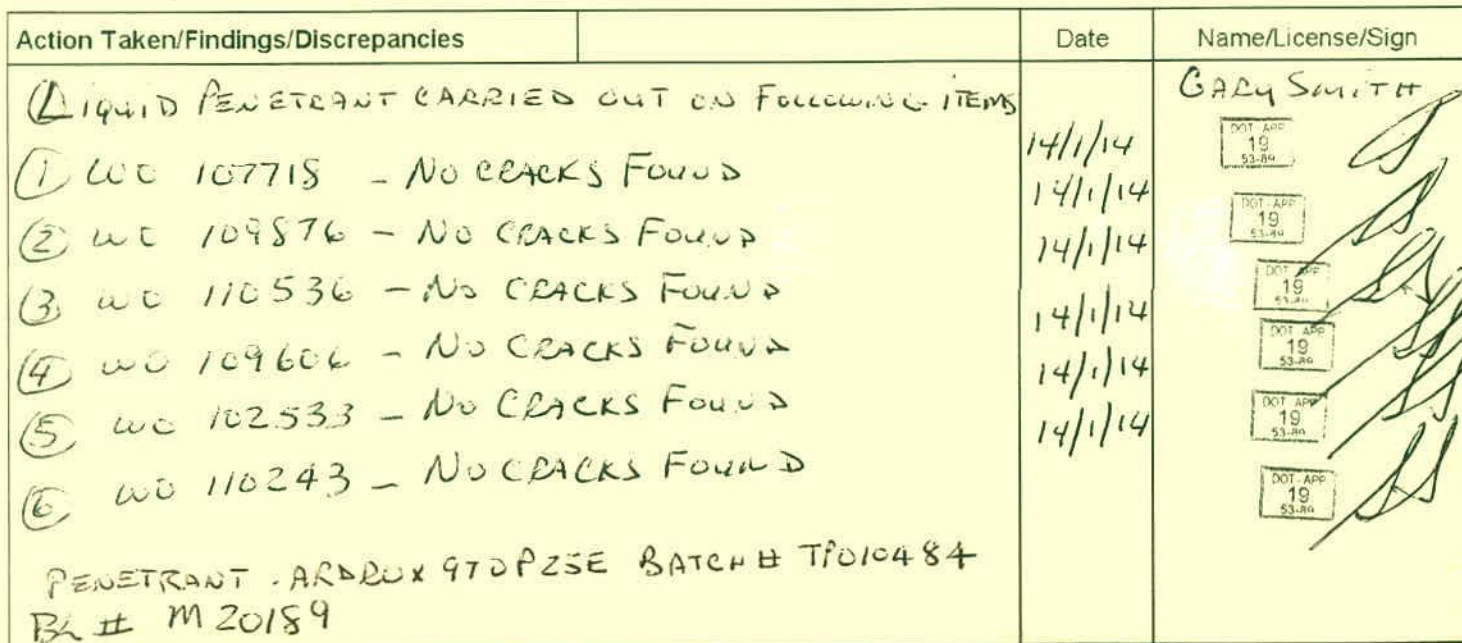 Action Taken/Findings/Discrepancies Date Name/License/Sign
LIQUID PENETRANT CARRIED OUT ON FOLLOWING ITEMS GARY SMITH
① WO 107718 - NO CRACKS FOUND 14/1/14 DOT-APP 19 53-89
② WO 109876 - NO CRACKS FOUND 14/1/14 DOT-APP 19 53-89
③ WO 110536 - NO CRACKS FOUND 14/1/14 DOT-APP 19 53-89
④ WO 109606 - NO CRACKS FOUND 14/1/14 DOT-APP 19 53-89
⑤ WO 102533 - NO CRACKS FOUND 14/1/14 DOT-APP 19 53-89
⑥ WO 110243 - NO CRACKS FOUND 14/1/14 DOT-APP 19 53-89
PENETRANT - ARDROX 970P25E BATCH # TP010484
# M20189